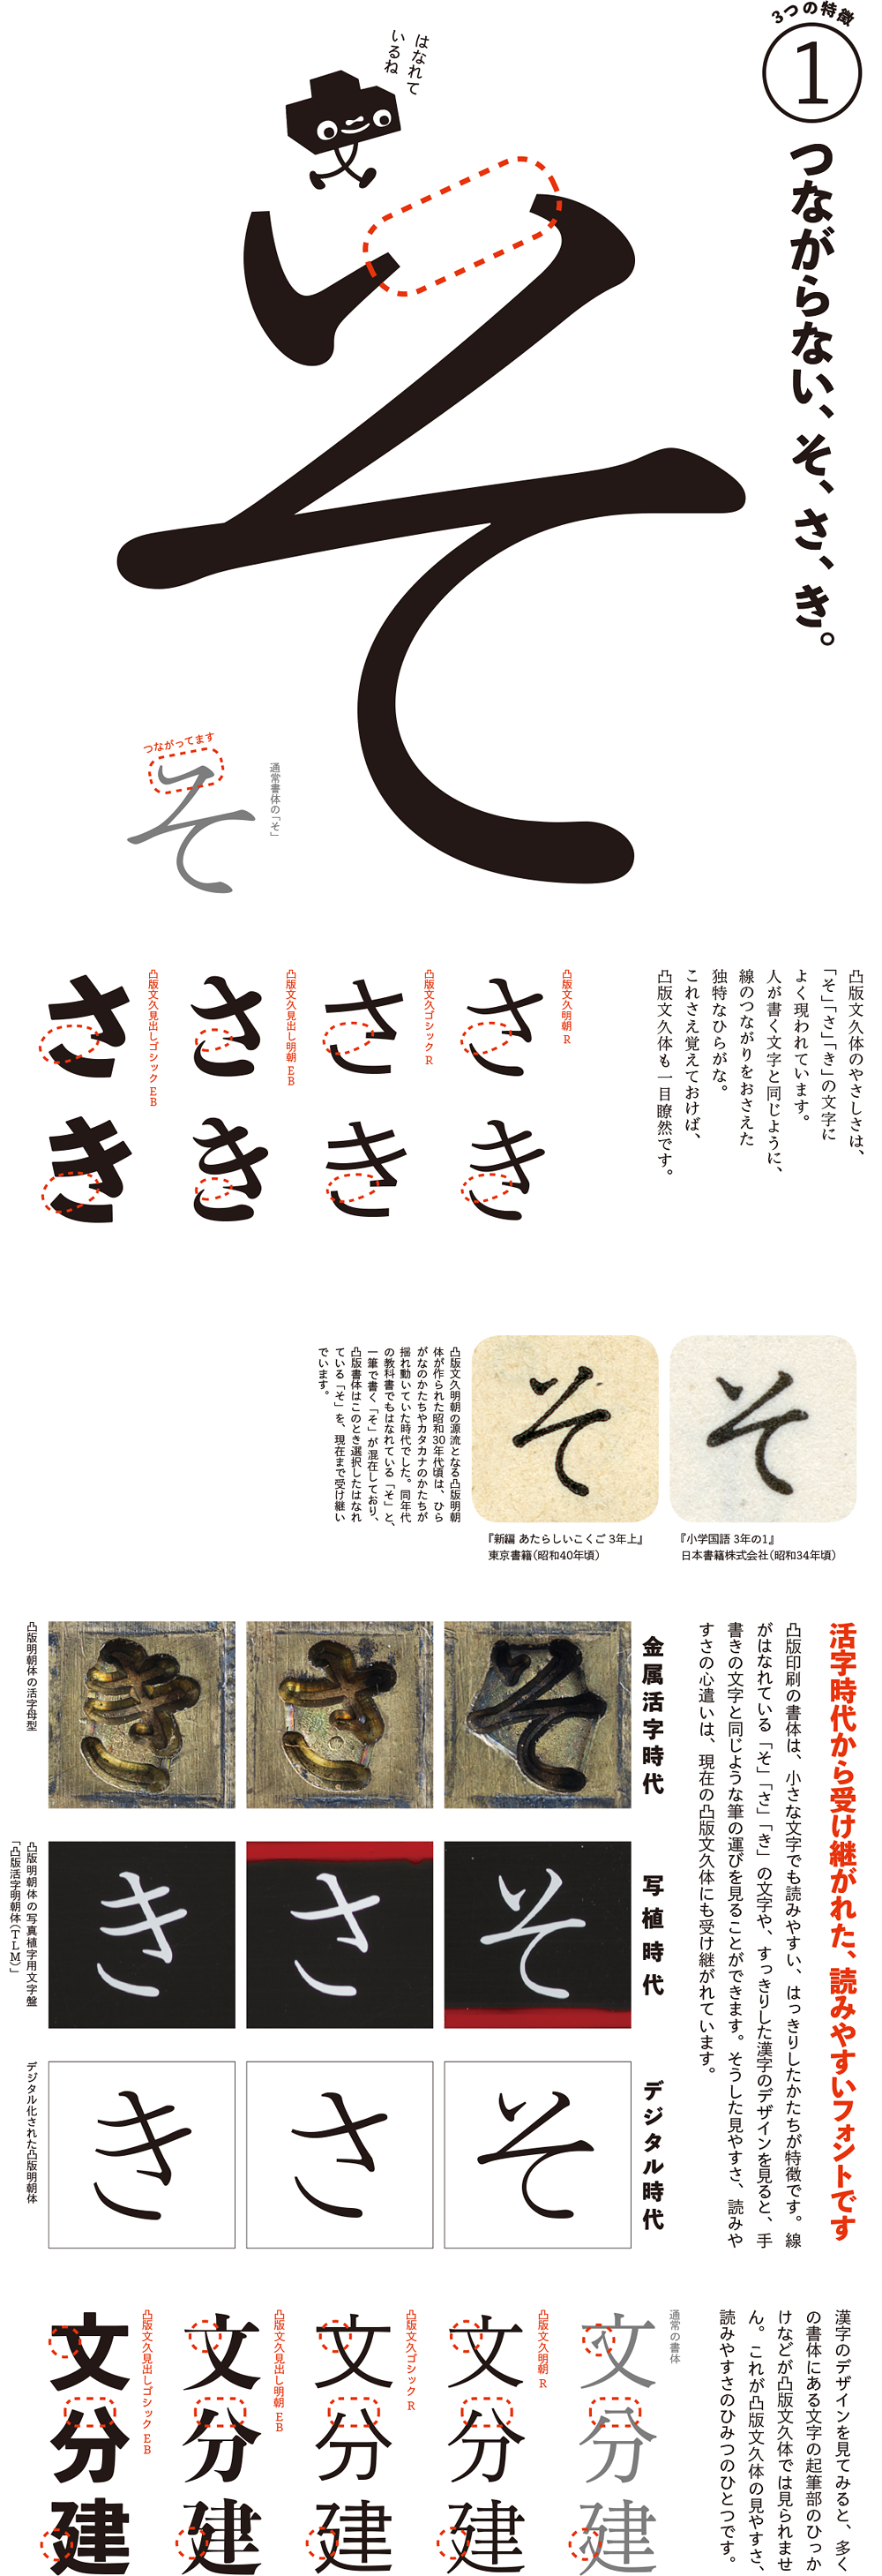 3つの特徴
1
つながらない、そ、さ、き。
はなれて
いるね
そ
通常書体の「そ」
つながってます
そ
凸版文久体のやさしさは、
「そ」「さ」「き」の文字に
よく現われています。
人が書く文字と同じように、
線のつながりをおさえた
独特なひらがな。
これさえ覚えておけば、
凸版文久体も一目瞭然です。
凸版文久明朝 R
さ
き
凸版文久ゴシック R
さ
き
凸版文久見出し明朝 EB
さ
き
凸版文久見出しゴシック EB
さ
き
そ
『小学国語 3年の1』
日本書籍株式会社(昭和34年頃)
そ
『新編 あたらしいこくご 3年上』
東京書籍(昭和40年頃)
凸版文久明朝の源流となる凸版明朝
体が作られた昭和30年代頃は、ひら
がなのかたちやカタカナのかたちが
揺れ動いていた時代でした。同年代
の教科書でもはなれている「そ」と、
一筆で書く「そ」が混在しており、
凸版書体はこのとき選択したはなれ
ている「そ」を、現在まで受け継い
でいます。
活字時代から受け継がれた、読みやすいフォントです
凸版印刷の書体は、小さな文字でも読みやすい、はっきりしたかたちが特徴です。線
がはなれている「そ」「さ」「き」の文字や、すっきりした漢字のデザインを見ると、手
書きの文字と同じような筆の運びを見ることができます。そうした見やすさ、読みや
すさの心遣いは、現在の凸版文久体にも受け継がれています。
金属活字時代
そ
さ
き
凸版明朝体の活字母型
写植時代
そ
さ
き
凸版明朝体の写真植字用文字盤
「凸版活字明朝体(T-LM)」
デジタル時代
そ
さ
き
デジタル化された凸版明朝体
漢字のデザインを見てみると、多く
の書体にある文字の起筆部のひっか
けなどが凸版文久体では見られませ
ん。これが凸版文久体の見やすさ、
読みやすさのひみつのひとつです。
通常の書体
文
分
建
凸版文久明朝 R
文
分
建
凸版文久ゴシック R
文
分
建
凸版文久見出し明朝 EB
文
分
建
凸版文久見出しゴシック EB
文
分
建